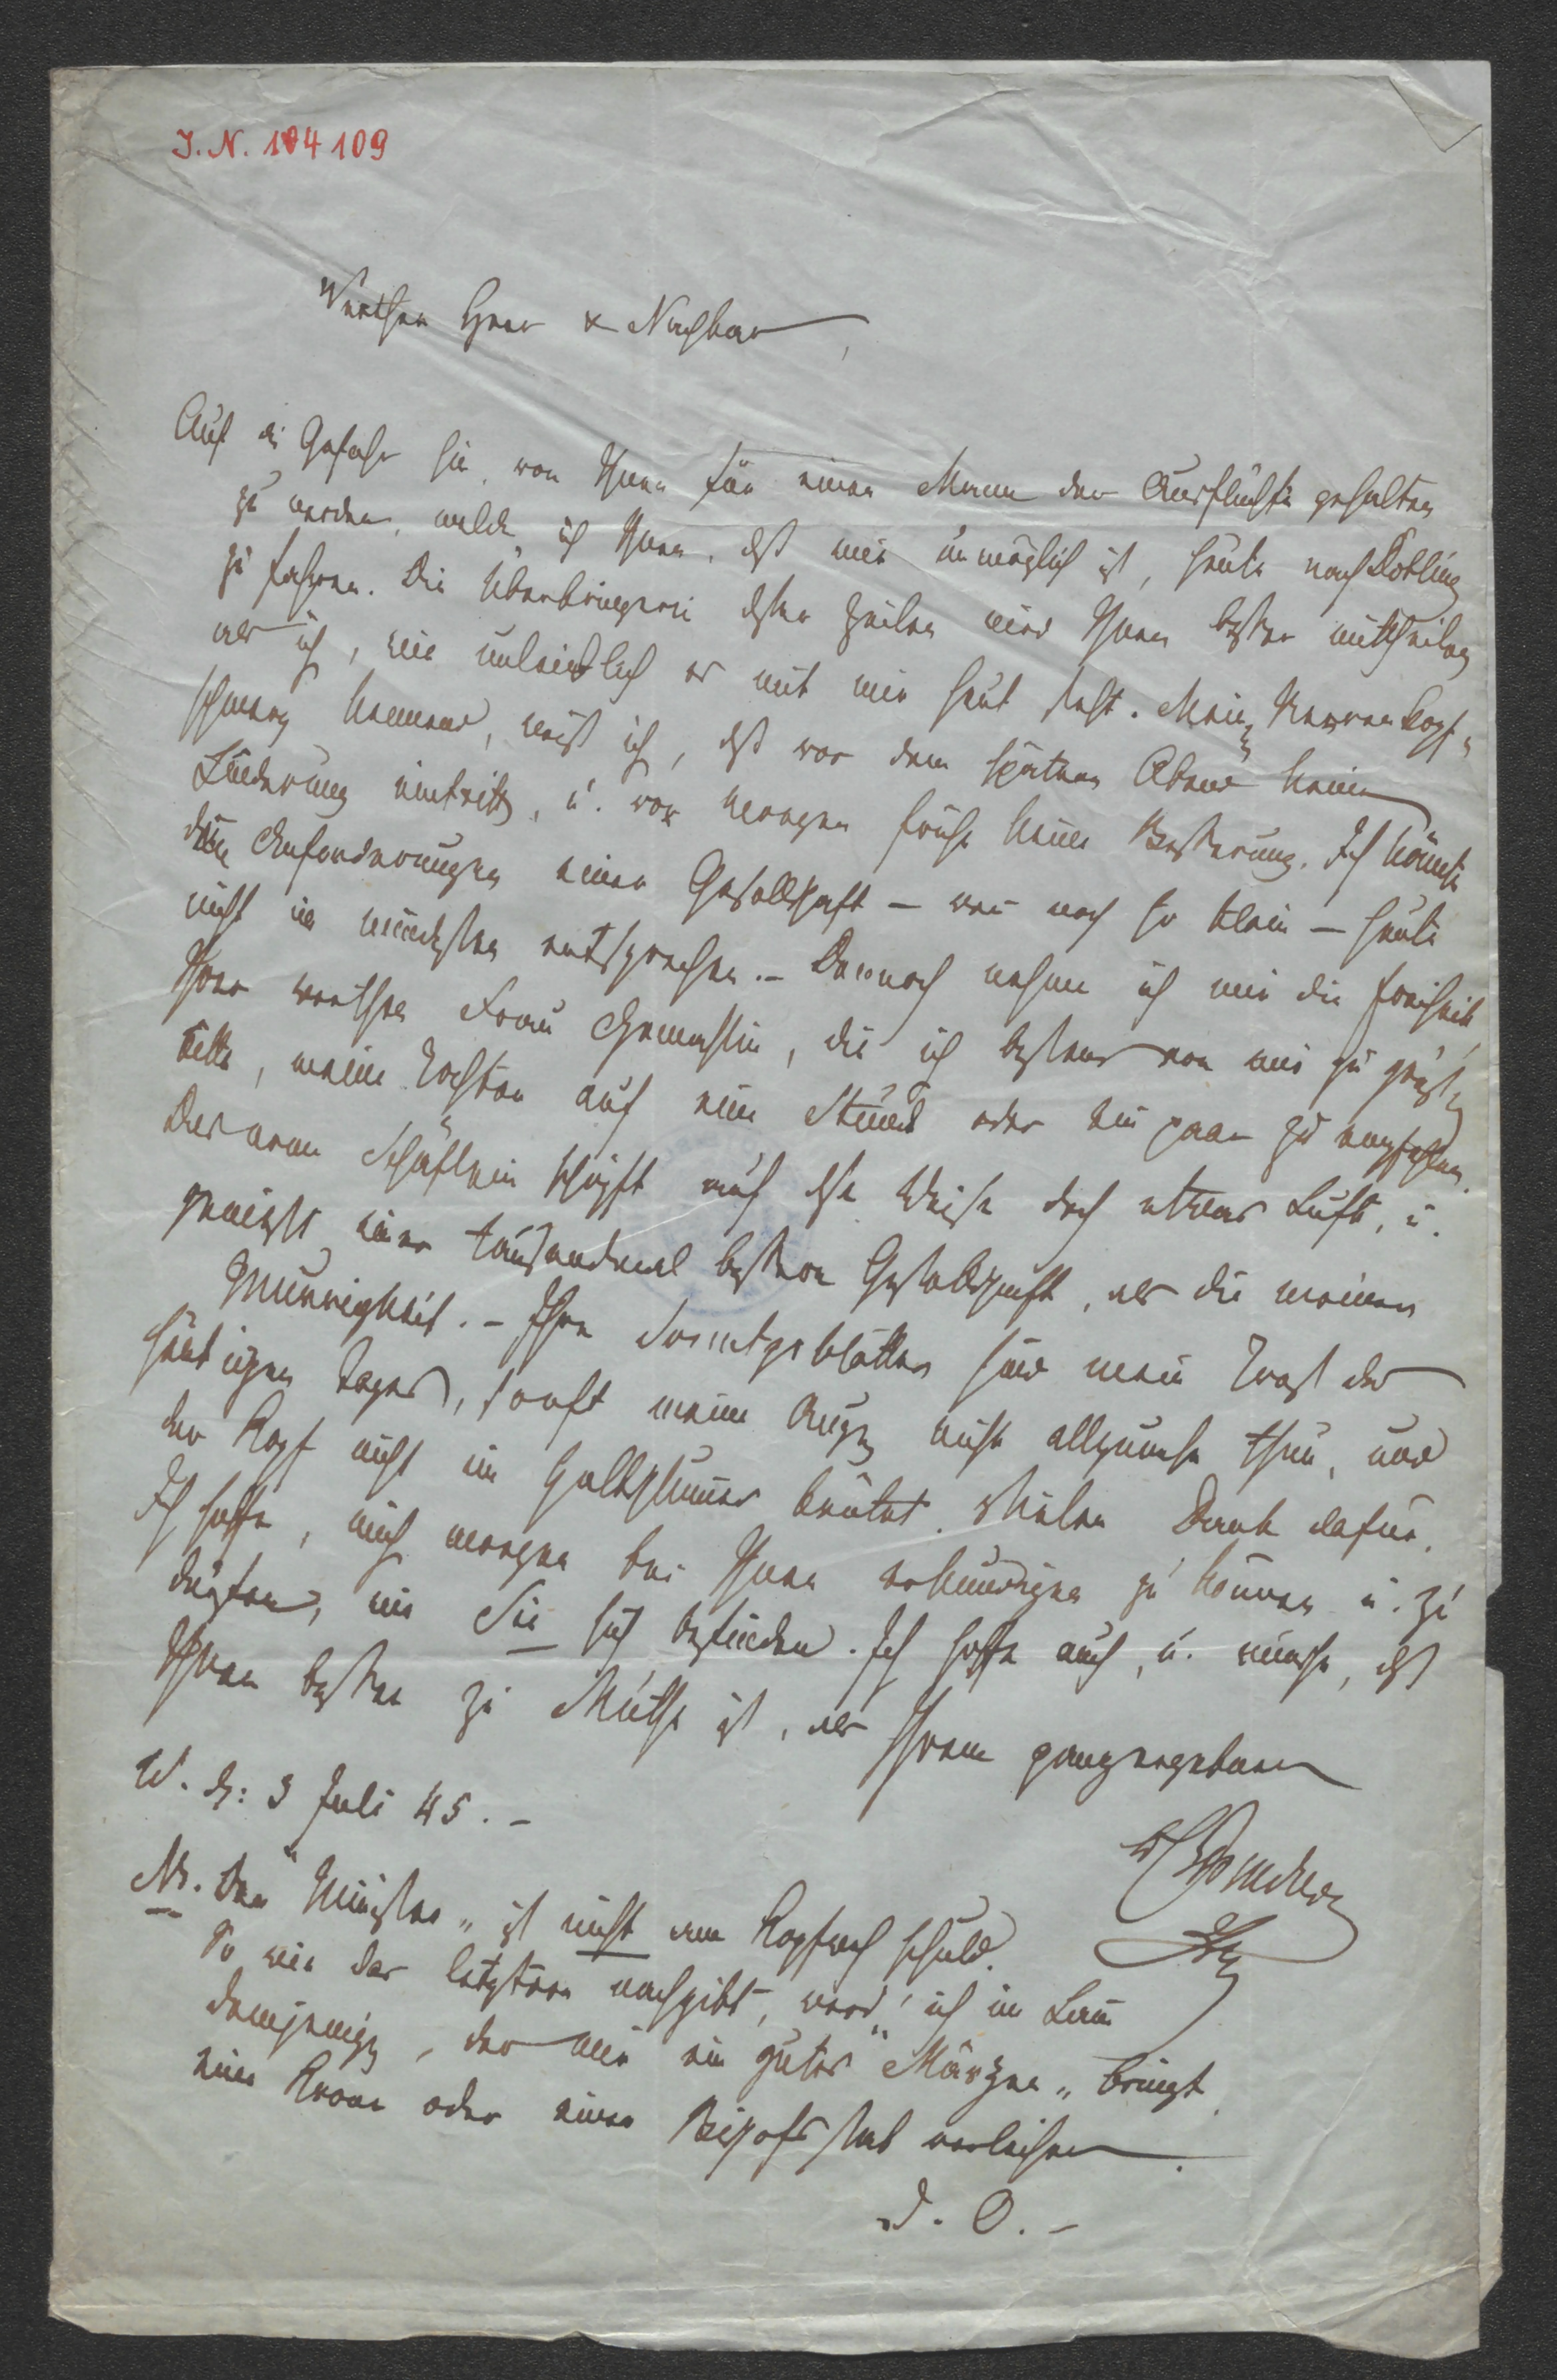 I.N. 104109
Werther Herr & Nachbar,
Auf die Gefahr hin, von Ihnen für einen Mann der Ausflüchte gehalten
zu werden, melde ich Ihnen, dß mir unmöglich ist, heute nach Döbling
zu fahren. Die Überbringerin dser Zeilen wird Ihnen besser mittheilen
als ich, wie unleidlich es mit mir heut steht. Mein Nervenkopf-
schmerz kennend, weiß ich, dß vor dem spätern Abend keine
Linderung eintritt, u. vor morgen früh keine Besserung. Ich könnte
den Anforderungen einer Gesellschaft – wenn noch so klein – heute
nicht im mindesten entsprechen. – Dennoch nehme ich mir die Freiheit,
Ihrer werthen Frau Gemahlin, die ich bestens von mir zu grüßen
bitte, meine Tochter auf eine Stund oder ein paar zu empfehlen.
Das arme Schäflein schöpft auf dse Weise doch etwas Luft, u.
genießt einer tausendmal bessern Gesellschaft, als die meiner
Mürrigkeit. – Ihre Sonntagsblätter sind mein Trost des
heutigen Tages, so oft meine Augen nicht allzuweh thun, und
der Kopf nicht im Halbschlummer brütet. Vielen Dank dafür.
Ich hoffe, mich morgen bei Ihnen erkundigen zu können u. zu
dürfen, wie Sie sich befinden. Ich hoffe auch, u. wünsche, dß
Ihnen besser zu Muthe ist, als Ihrem ganz ergebenen
W. d: 3 Juli 45. –
NB. Der "Minister" ist nicht am Kopfweh schuld.
So wie das letztere nachgibt, werd' ich im
demjenigen, der mir ein gutes "Märchen" bringt,
eine Krone oder einen Bischofsstab verleihen.
D. O. –